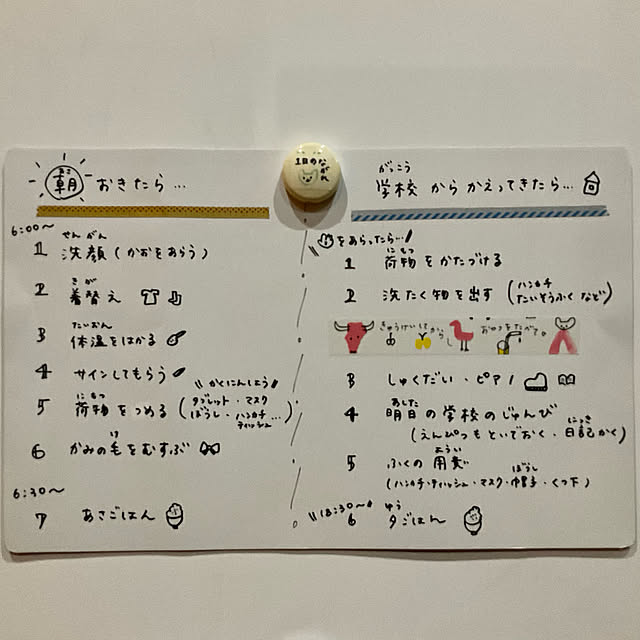 1日のながれ
朝 おきたら…
あさ
6:00〜
せんがん
1 洗顔(かおをあらう)
きが
2 着替え
たいおん
3 体温をはかる
4 サインしてもらう
かくにんしよう
にもつ
5 荷物をつめる(タブレット・マスク
ぼうし・ハンカチ…
ティッシュ)
け
6 かみの毛をむすぶ
6:30〜
7 あさごはん
がっこう
学校からかえってきたら…
をあらったら…!
にもつ
1 荷物をかたづける
2 洗たく物を出す(ハンカチ
たいそうふくなど)
きゅうけいしてから おやつをたべて
3 しゅくだい・ピアノ
あした
4 明日の学校のじゅんび
にっき
(えんぴつもといでおく・日記かく)
ようい
5 ふくの用意
ぼうし
(ハンカチ・ティッシュ・マスク・帽子・くつ下)
18:30〜
ゆう
6 夕ごはん